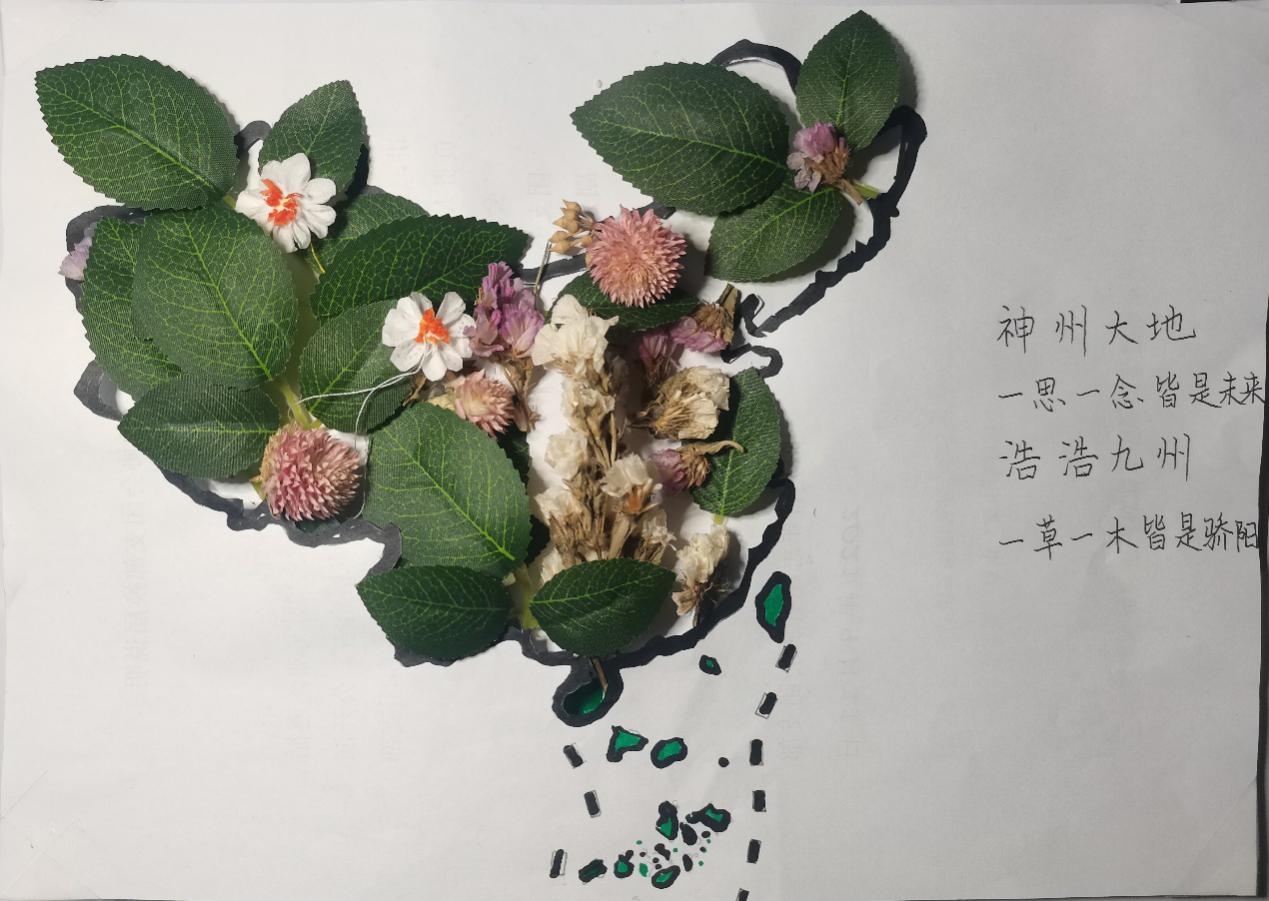 神州大地
一思一念皆是未来
浩浩九州
一草一木皆是骄阳